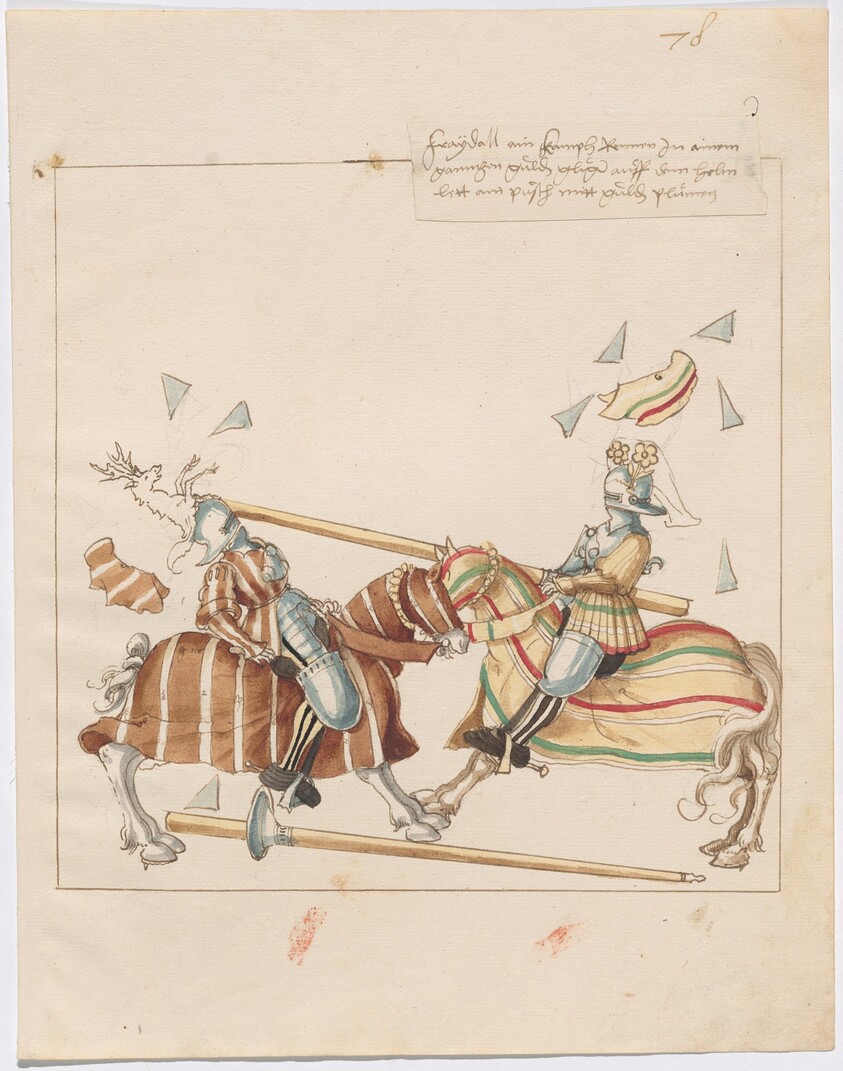 78
fraÿdall ain kampf Rennen In ainem
ganntzen guld auff dem helm
lett ain pusch mitt guld plumen